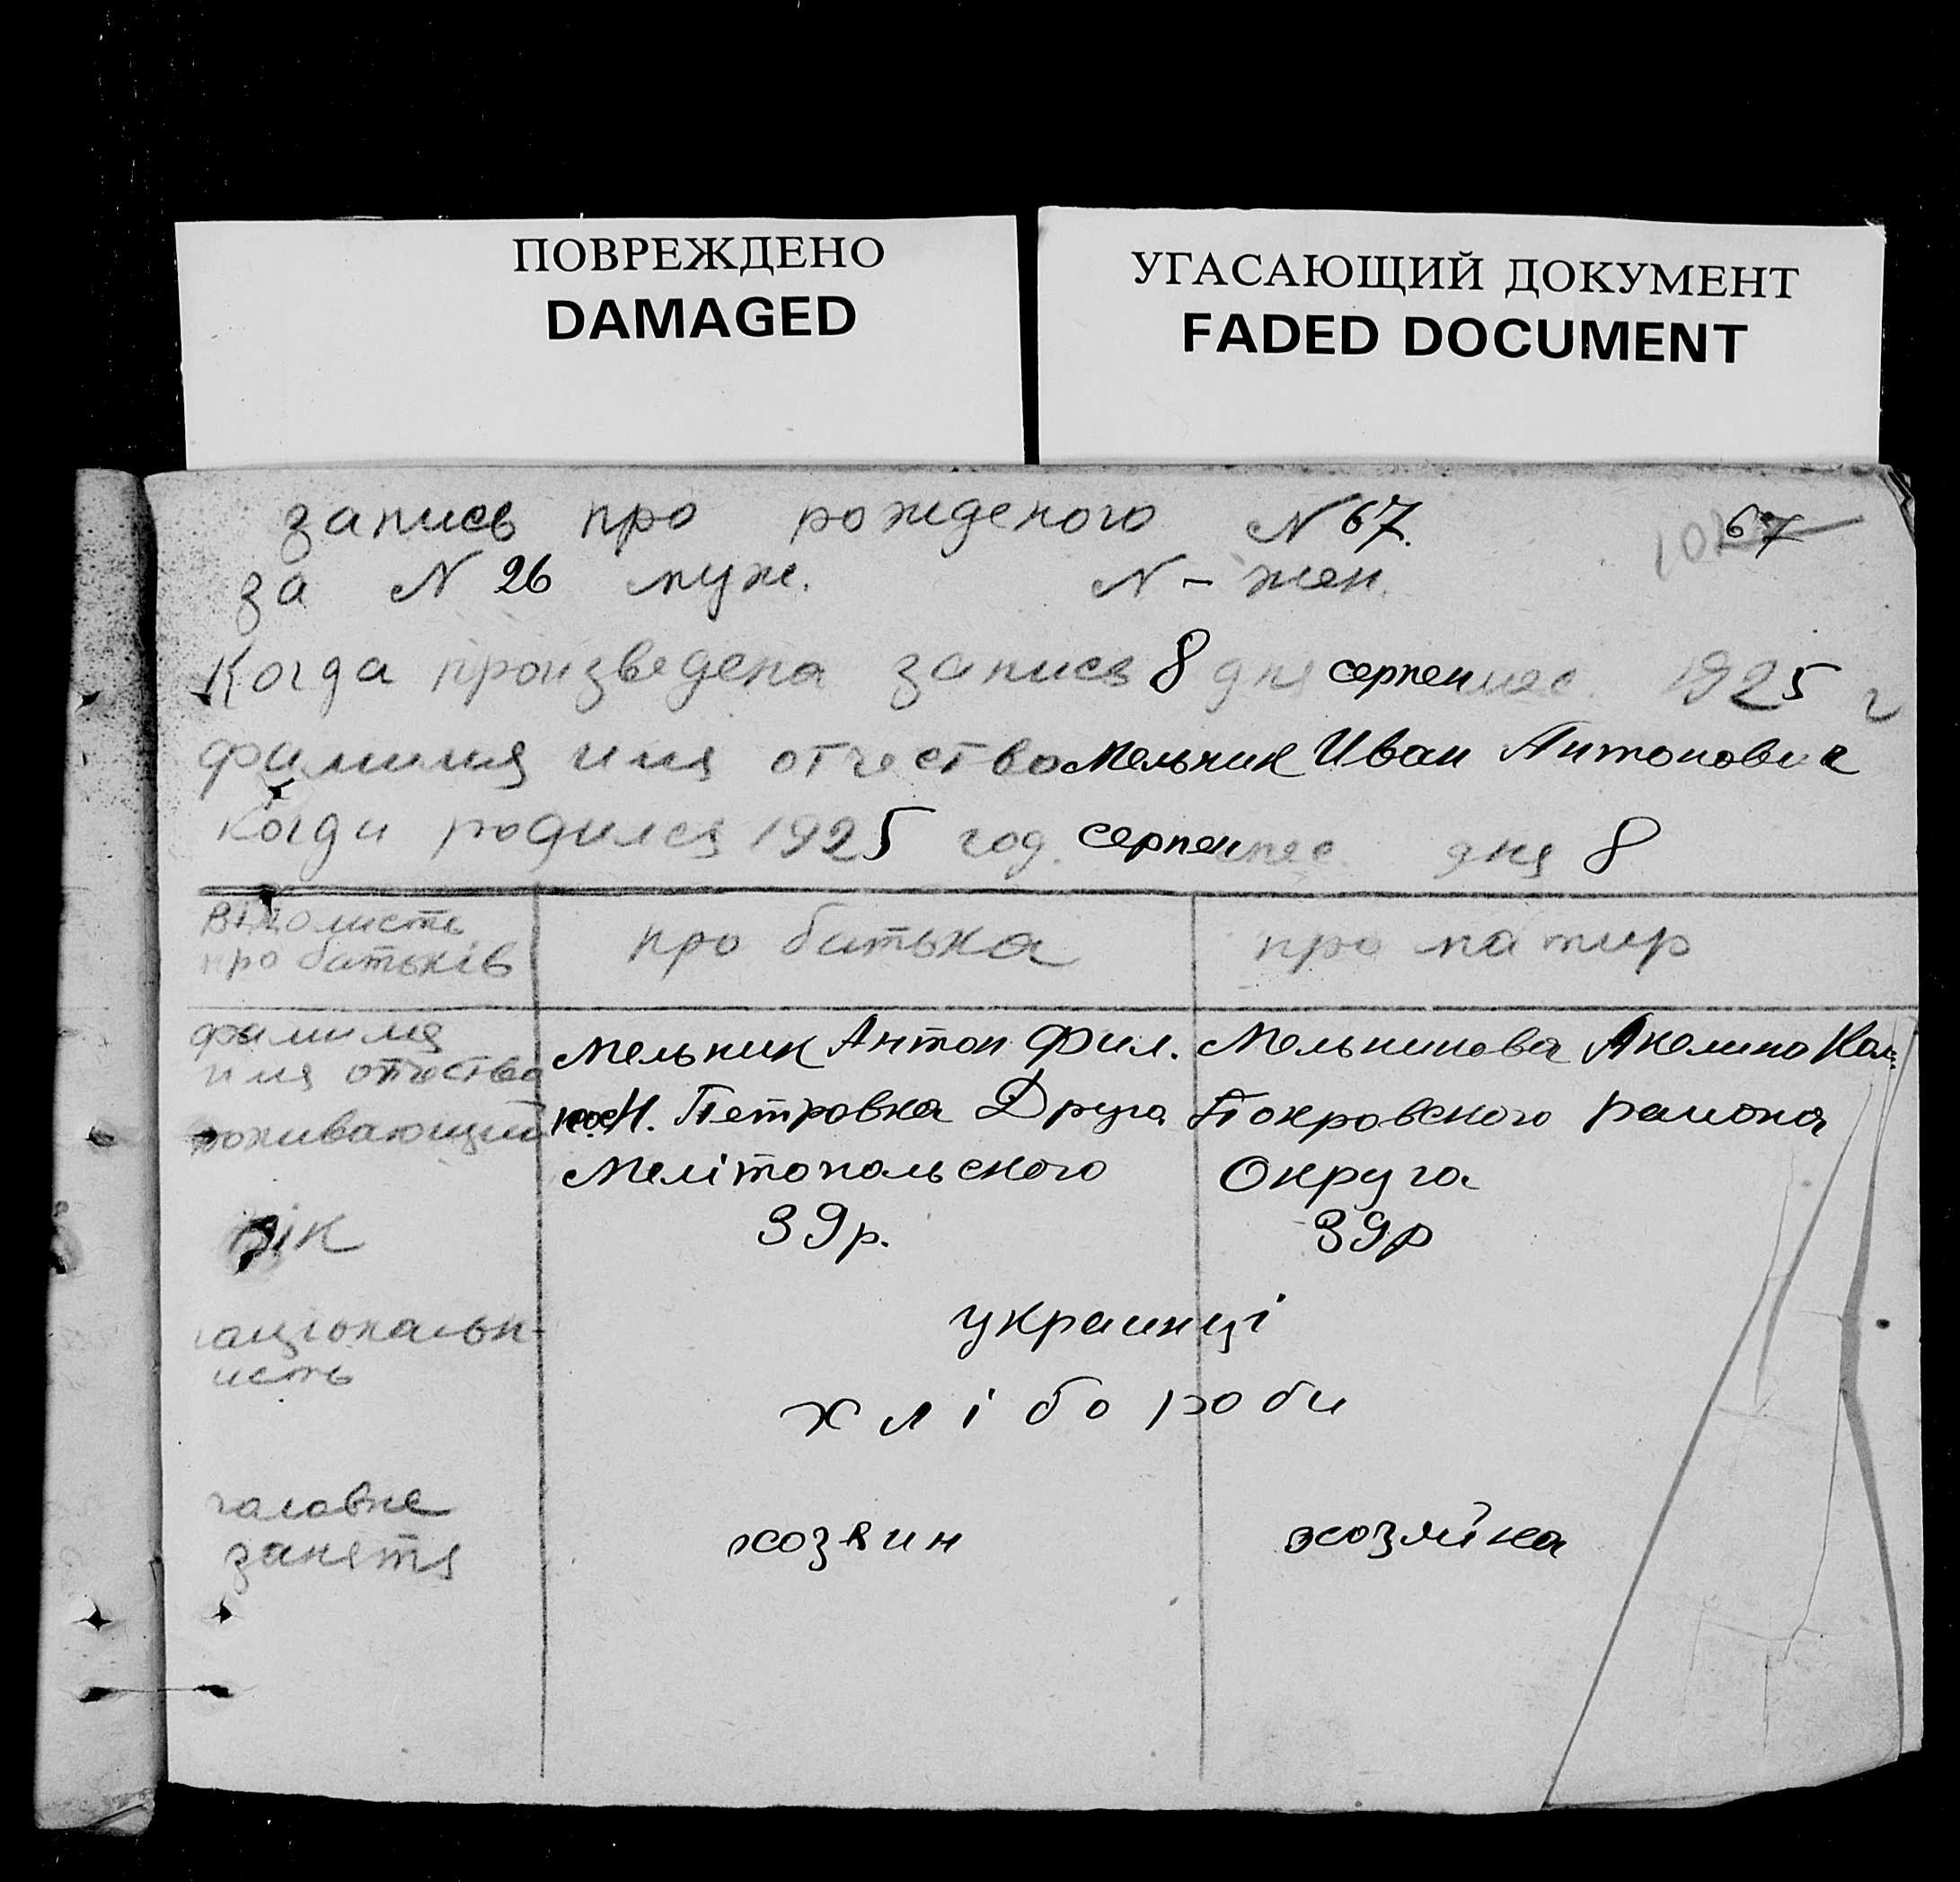 ПОВРЕЖДЕНО
DAMAGED
УГАСАЮЩИЙ ДОКУМЕНТ
FADED DOCUMENT
запись про рожденого N 67. 67
за N 26 муж. N - жен.
Когда произведена запись 8 дня серпен мес. 1925 г
фамилия имя отчество Мельник Иван Антонович
Когда родился 1925 год. серпен мес. дня 8
Відомисть про батька про матир
про батьків
фамилия Мельник Антон Фил. Мельникова Акелина
имя отчество
проживающий Н. Петровка Друга Покровского района
Мелітопольського Округа
Вік 39р. 39р
національн-
исть украинці
хлібороби
головне
заняття хозяин хозяйка